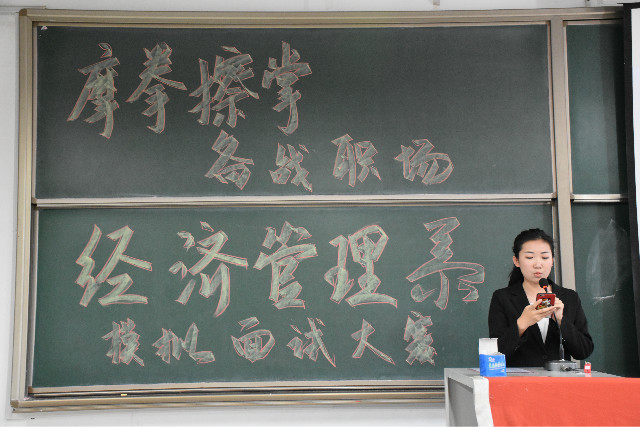 摩拳擦掌
备战职场
经济管理系
模拟面试大赛